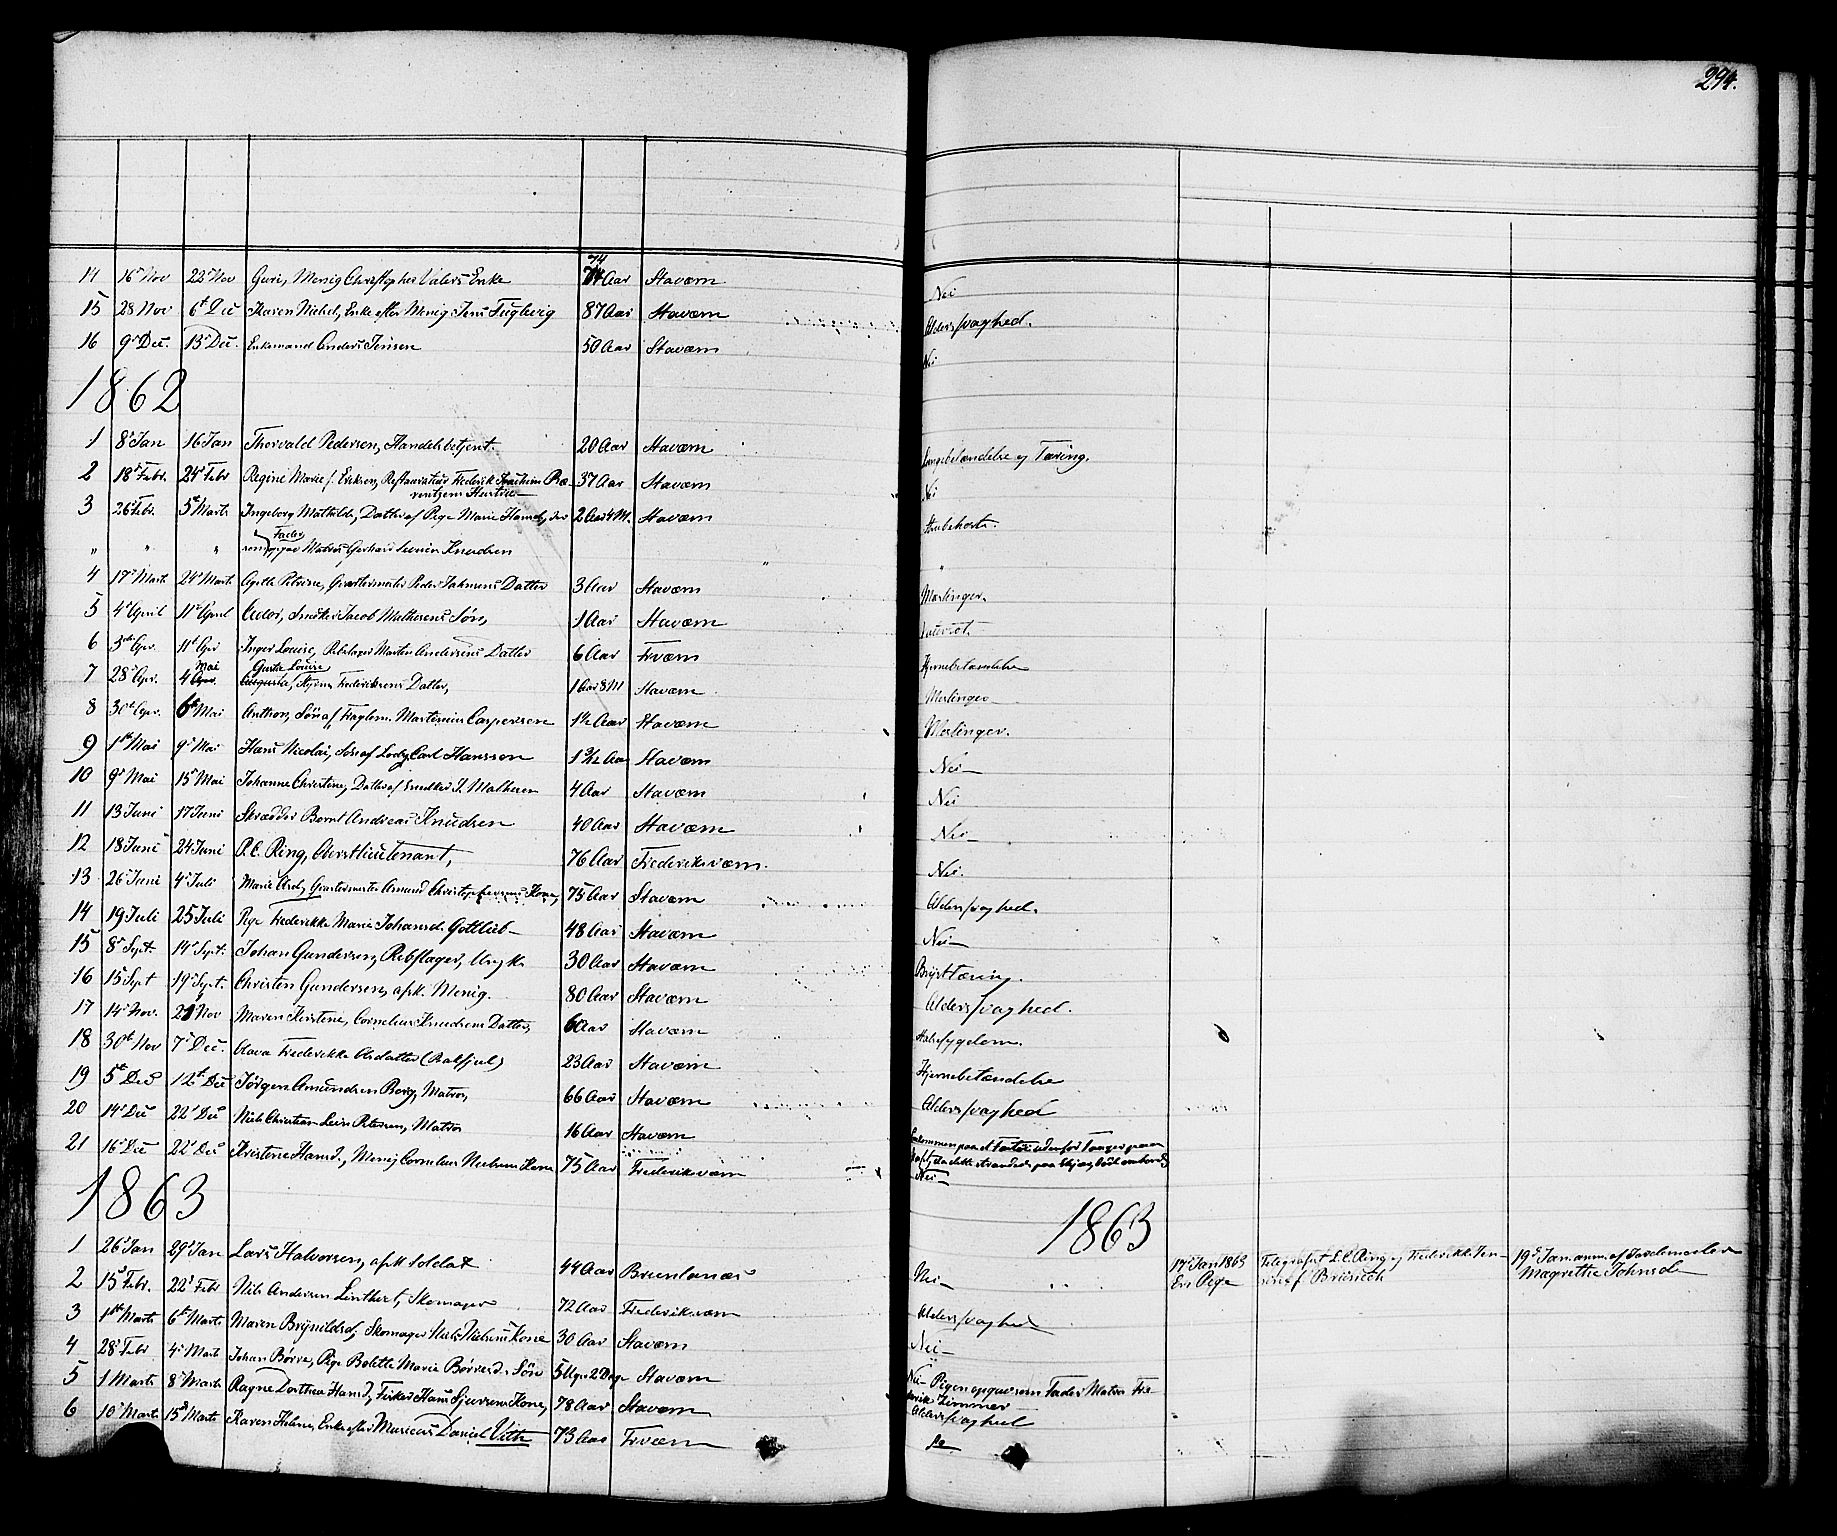 294.
14 16' Nov 22' Nov Guri, Menig Christopher Valers Enke 74 Aar Staværn Nei
15 28 Nov 6t Dec Karen Nichel, Enke efter Menig Jens Fuglevig 87 Aar Staværn Aldersvaghed.
16 9' Dec. 13' Dec. Enkemand Anders Jensen 50 Aar Staværn Nei
1862
1 8' Jan 16 Jan Thorvald Pedersen, Handelsbetjent. 20 Aar Staværn Lungebetændelse og Tæring.
2 18' Febr. 24' Febr Regine Marie f. Eriksen, Restauratiør Frederik Joachim 37 Aar Staværn Nei
Hustru
3 26' Febr. 5t Marts Ingeborg Mathilde, Datter af Pige Marie Hansd, der 2 Aar 4 M. Staværn Strubehoste.
" " " som Fader opgav Matros Gerhard Severin Knudsen "
4 17' Marts 24' Marts Agethe Petrine, Qvarteermester Peder Jahnsens Datter 3 Aar Staværn Mæslinger.
5 4' April 11' April Snedker Jacob Mathesens Søn, 1 Aar Staværn
6 5te Apr. 11t Apr Inger Louise, Rebslager Martin Andersens Datter 6 Aar Frværn Hjernebetændelse
7 28' Apr. 4 Mai Gusta Louise Frederiksens Datter, 1 Aar 8 M Staværn Mæslinger
8 30t Apr. 6t Mai Anthon, Søn af Fagtøm. Martinius Caspersen 1½ Aar Staværn Mæslinger.
9 1ste Mai 9' Mai Hans Nicolai, Søn af Lods Carl Hansson 1 9/12 Aar Staværn Nei
10 9' Mai 15' Mai Johanne Christine, Datter af Snedker J. Mathesen 4 Aar Staværn Nei
11 13 Juni 17 Juni Skrædder Bernt Andreas Knudsen 40 Aar Staværn Nei
12 18 Juni 24 Juni P.C. Ring, Oberstlieutenant, 76 Aar Frederiksværn. Nei.
13 26' Juni 4' Juli Marie Qvarteermester Amund Christophersens Kone, 75 Aar Staværn Aldersvaghed.
14 19 Juli 25 Juli Pige Frederikke Marie Johansd. Gottlieb 48 Aar Staværn Nei
15 8' Sept. 14' Sept. Johan Gundersen, Rebslager, Ungk 30 Aar Staværn Brysttæring.
16 15 Sept 19' Sept. Christen Gundersen, afsk. Menig. 80 Aar Staværn Aldersvaghed.
17 14' Nov. 21 Nov Maren Kirstine, Cornelius Knudsens Datter 6 Aar Staværn Halssygdom.
18 30t Nov 7' Dec. Olava Frederikke Olsdatter 23 Aar Staværn Hjernebetændelse
19 5t Dec 12t Dec Jørgen Amundsen Berg, Matros, 66 Aar Staværn Aldersvaghed
20 14' Dec 22' Dec Niels Christian Petersen, Matros 16 Aar Staværn Omkommen paa et Fartøi udenfor
da dette strandede paa
21 16' Dec 22' Dec Kristine Hansd., Menig Cornelius Nielsens Kone 75 Aar Frederiksværn Nei
1863 1863
1 26' Jan 29' Jan Lars Halvorsen, afsk Soldat 44 Aar Brunlanæs Nei 17' Jan 1863 En Pige Telegrafist L.C. Ring og Frederikke f. Brünech 19' Jan. anm. af Jordemoder Magrethe Johnsd
2 15' Febr. 22' Febr Nils Andersen Linthert, Skomager 72 Aar Frederiksværn Aldersvaghed
3 1ste Marts 6t Marts Maren Brynildsd, Skomager Niels Nielsens Kone 30 Aar Staværn Nei
4 28' Febr 4' Marts Johan Børre, Pige Bolette Marie Børresd. Søn 5 Uger 2 Dage Staværn Nei Pigen opgav som Fader Matros Fre-
derik Zimmer
5 1 Marts 8' Marts Ragne Dorthea Hansd, Fisker Hans Kone, 78 Aar Staværn Aldersvaghed
6 10' Marts 15' Marts Karen Helene, Enke efter Musicus Daniel Vith 73 Aar Frværn do